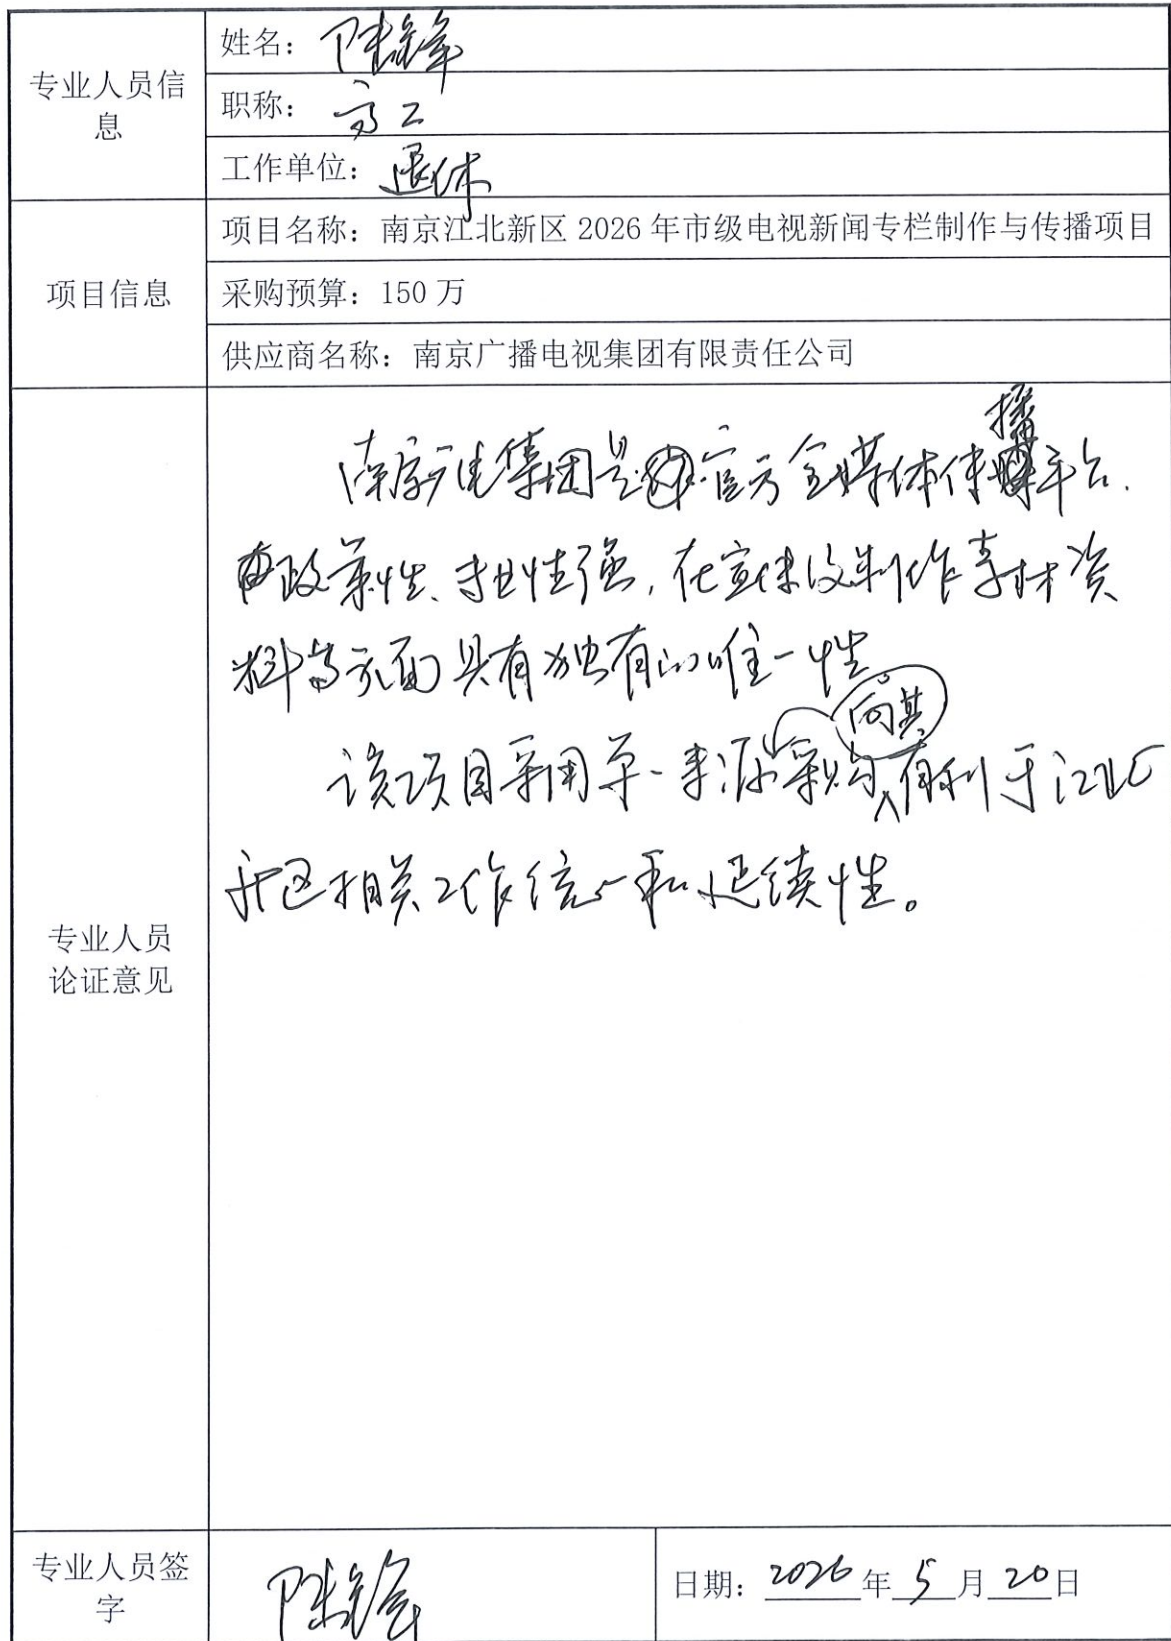 专业人员信
息
姓名：陈锋
职称：高工
工作单位：退休
项目信息
项目名称：南京江北新区 2026 年市级电视新闻专栏制作与传播项目
采购预算：150 万
供应商名称：南京广播电视集团有限责任公司
专业人员
论证意见
南京广电集团是官方全媒体传播平台.
政策性、性强,在宣传及制作素材资
料等方面具有独有的唯一性。
该项目采用单一来源向其采购有利于江北
新区相关工作统一和延续性。
专业人员签
字
陈锋
日期：2026年5月20日